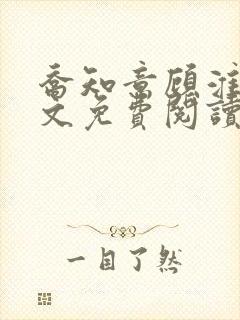 喬知意顧淮
文免費閱讀
一目了然